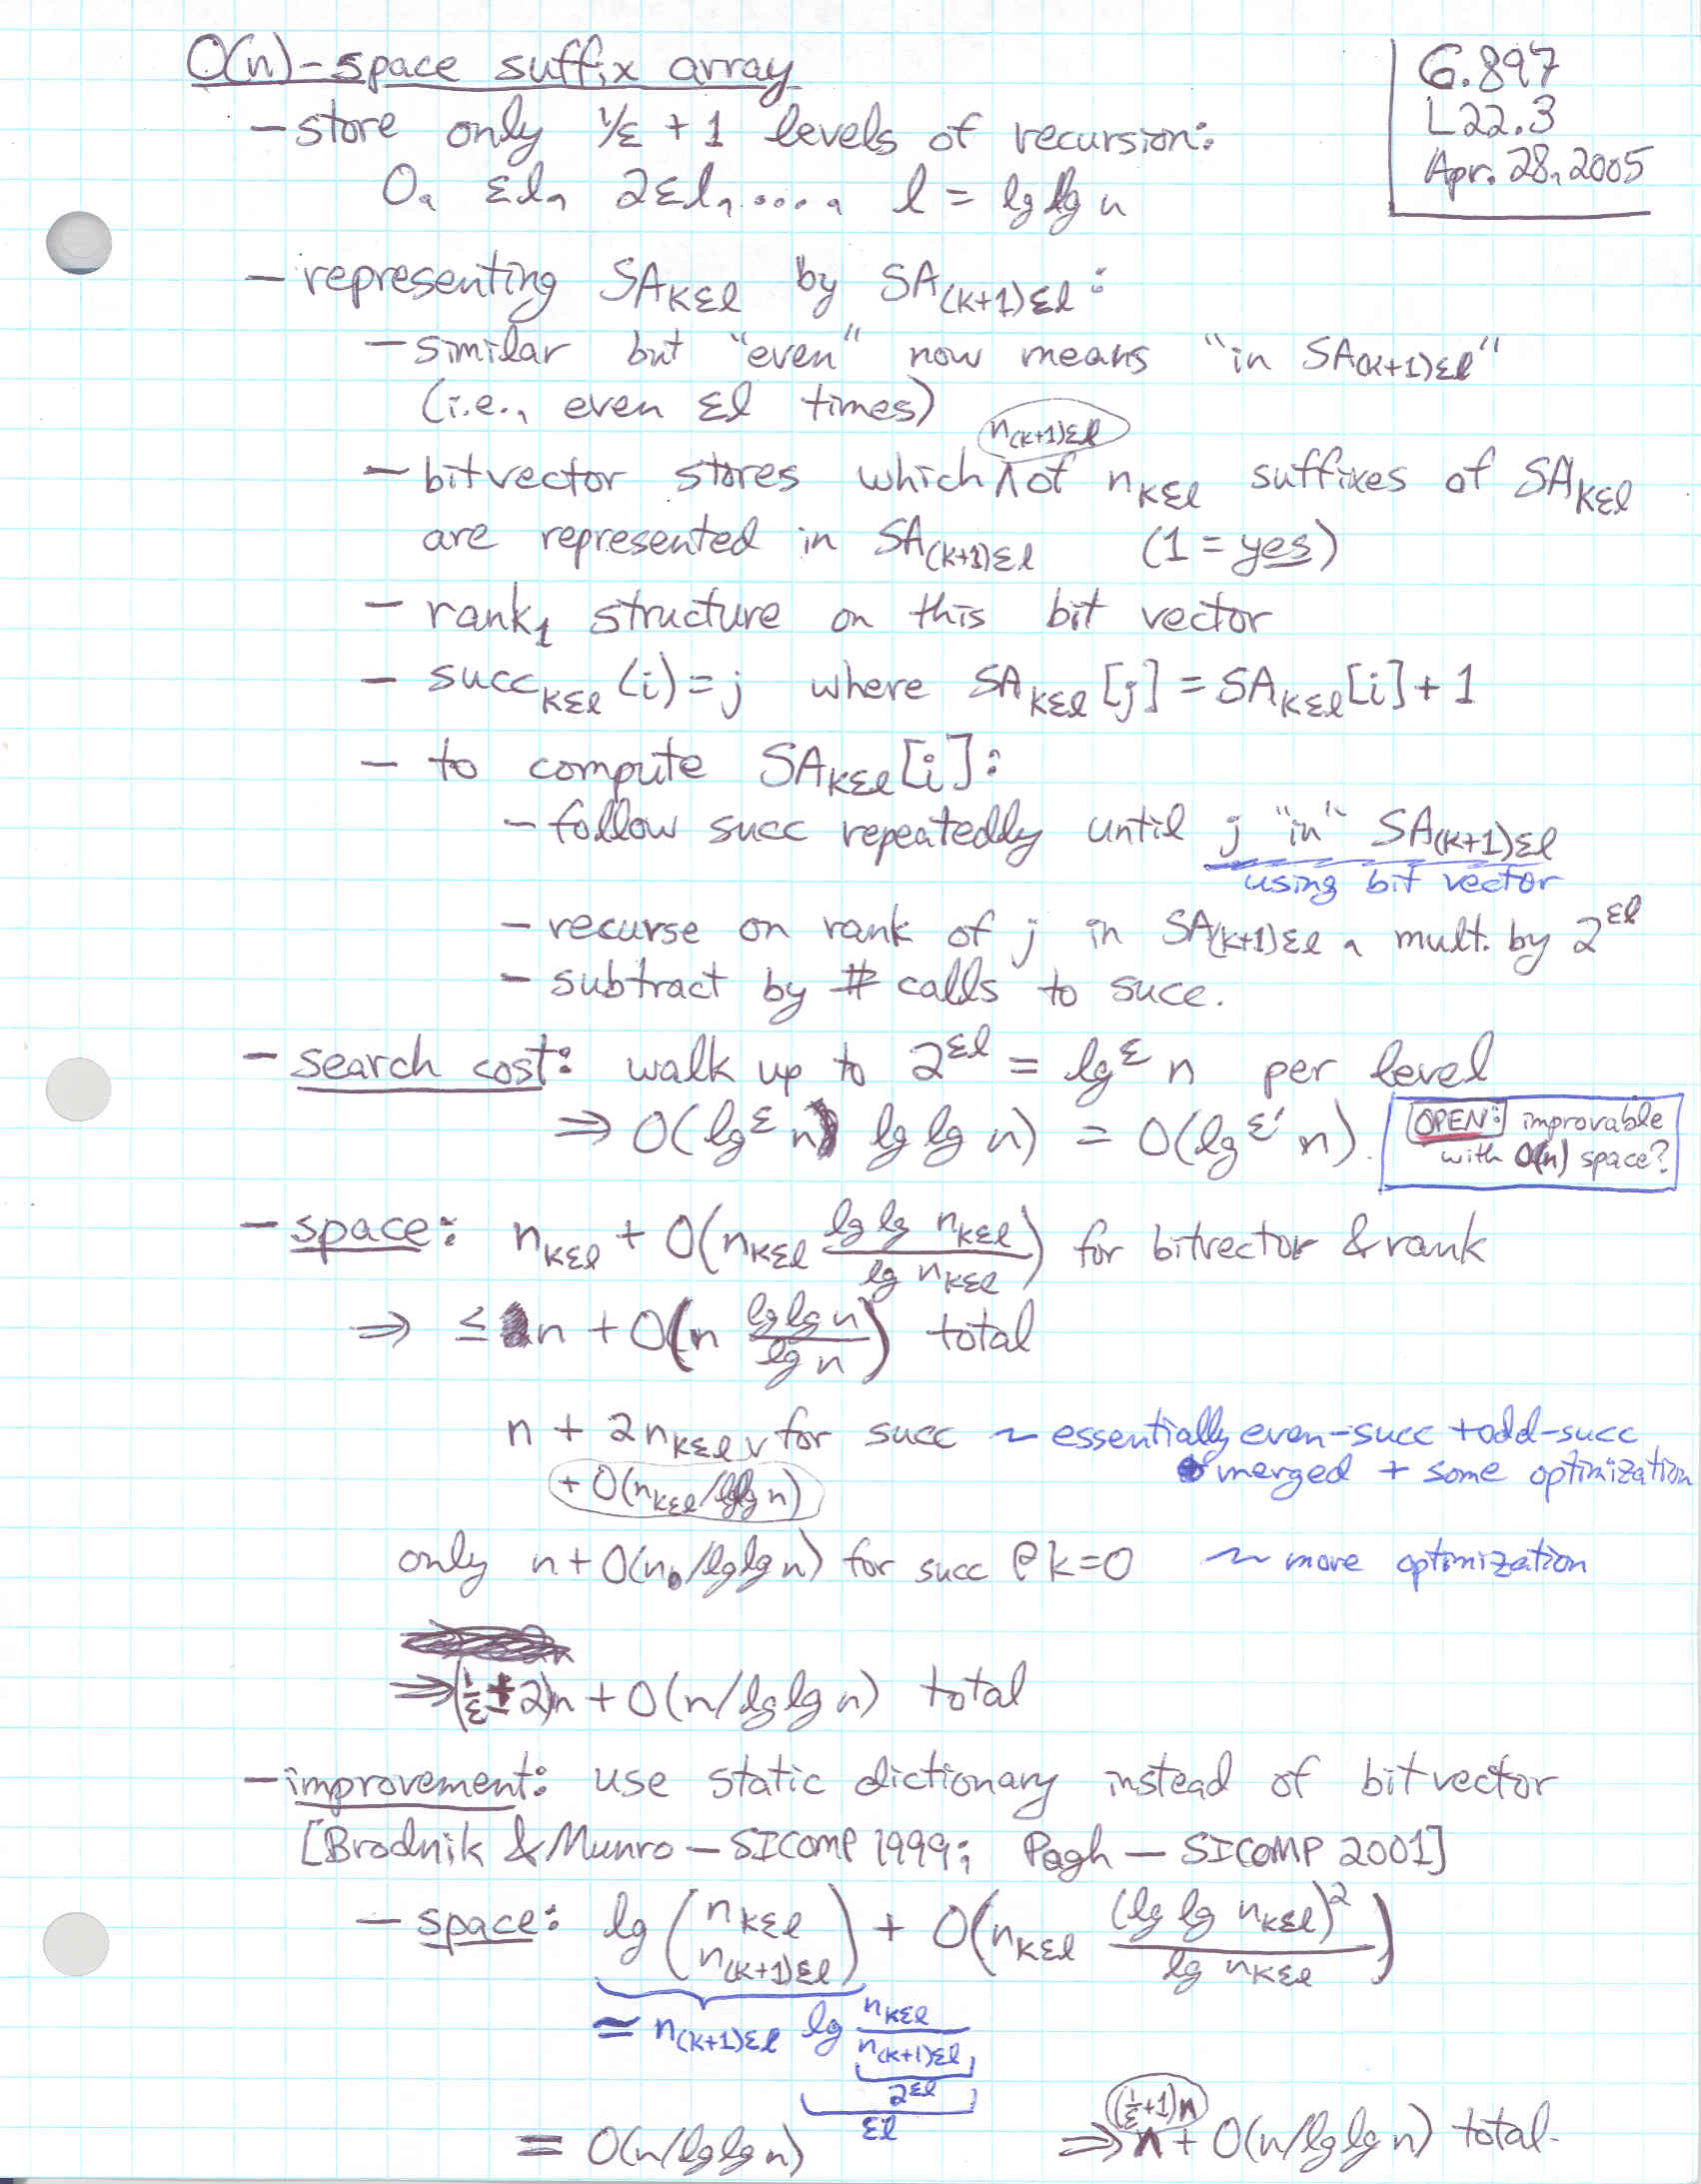 O(n)-space suffix array
6.897
L22.3
Apr. 28, 2005
- store only 1/ε + 1 levels of recursion:
0, εl, 2εl, ...., l = lg lg n
- representing SA_kεl by SA_(k+1)εl:
- similar but "even" now means "in SA_(k+1)εl"
(i.e., even εl times)
n_(k+1)εl
- bitvector stores which ∧ of n_kεl suffixes of SA_kεl
are represented in SA_(k+1)εl (1 = yes)
- rank_1 structure on this bit vector
- succ_kεl (i) = j where SA_kεl [j] = SA_kεl [i] + 1
- to compute SA_kεl [i]:
- follow succ repeatedly until j "in" SA_(k+1)εl
using bit vector
- recurse on rank of j in SA_(k+1)εl, mult. by 2^εl
- subtract by # calls to succ.
- search cost: walk up to 2^εl = lg^ε n per level
⇒ O(lg^ε n lg lg n) = O(lg^ε' n).
OPEN: improvable
with O(n) space?
- space: n_kεl + O(n_kεl lg lg n_kεl / lg n_kεl) for bitvector & rank
⇒ ≤ n + O(n lg lg n / lg n) total
n + 2n_kεl ∨ for succ ~ essentially even-succ + odd-succ
merged + some optimization
+ O(n_kεl/lg lg n)
only n + O(n_0/lg lg n) for succ @ k=0 ~ more optimization
⇒ (1/ε + 2)n + O(n/lg lg n) total
- improvement: use static dictionary instead of bitvector
[Brodnik & Munro - SICOMP 1999; Pagh - SICOMP 2001]
- space: lg (n_kεl n_(k+1)εl) + O(n_kεl (lg lg n_kεl)^2 / lg n_kεl)
≈ n_(k+1)εl lg n_kεl / n_(k+1)εl
2^εl
εl
= O(n/lg lg n)
(1/ε+1)n
⇒ n + O(n/lg lg n) total.